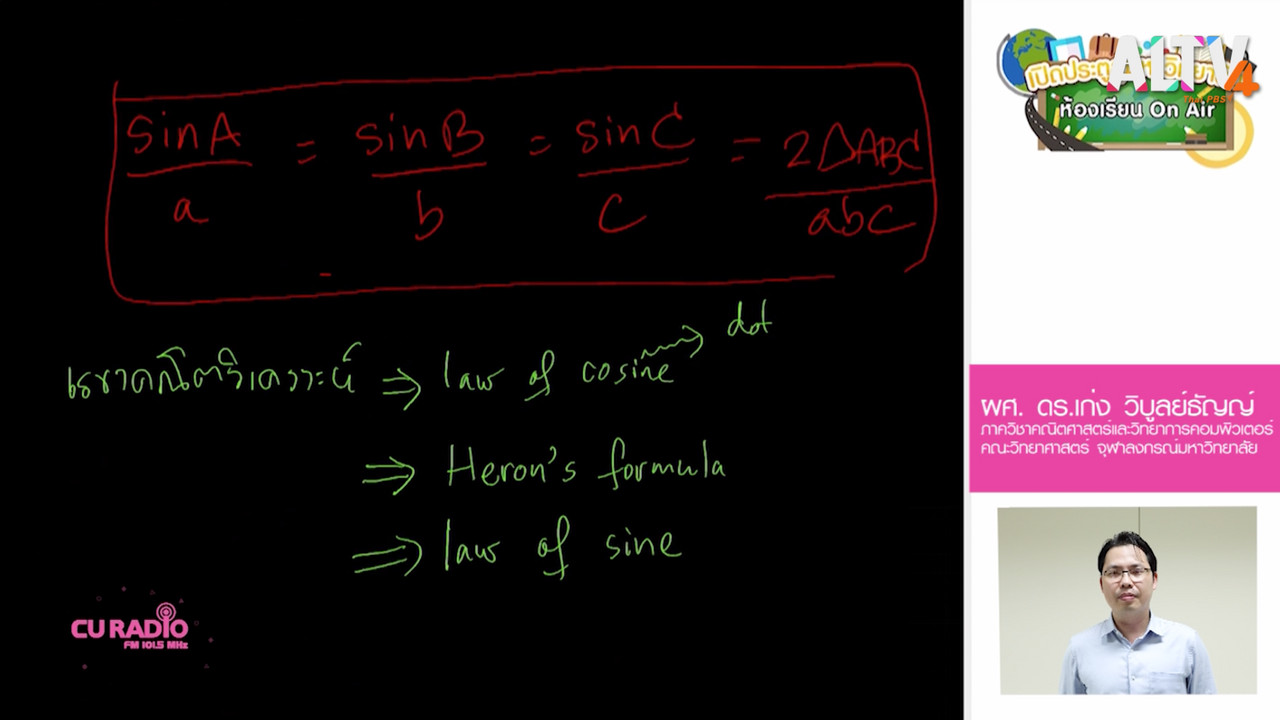 sin A / a = sin B / b = sin C / c = 2ΔABC / abc
dot
เรขาคณิตวิเคราะห์ ⇒ law of cosine
⇒ Heron's formula
⇒ law of sine
CU RADIO
FM 101.5 MHz
ALTV 4
Thai PBS
ห้องเรียน On Air
ผศ. ดร.เก่ง วิบูลย์ธัญญ์
ภาควิชาคณิตศาสตร์และวิทยาการคอมพิวเตอร์
คณะวิทยาศาสตร์ จุฬาลงกรณ์มหาวิทยาลัย